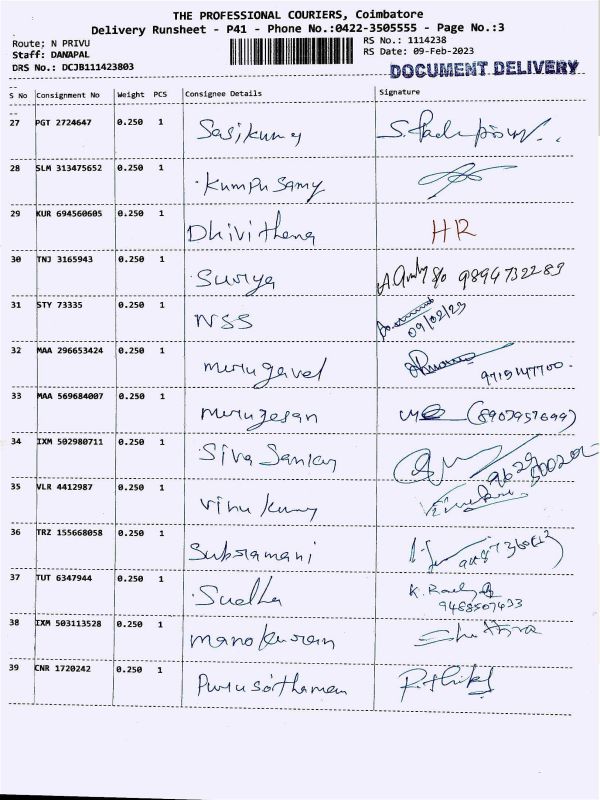 THE PROFESSIONAL COURIERS, Coimbatore
Delivery Runsheet - P41 - Phone No.:0422-3505555 - Page No.:3
Route; N PRIVU
RS No.: 1114238
Staff: DANAPAL
RS Date: 09-Feb-2023
DRS No.: DCJB111423803
DOCUMENT DELIVERY
S No Consignment No Weight PCS Consignee Details Signature
27 PGT 2724647 0.250 1 Sasikumar
28 SLM 313475652 0.250 1 Kumpusamy
29 KUR 694560605 0.250 1 Dhivithena HR
30 TNJ 3165943 0.250 1 Suriya 9894732283
31 STY 73335 0.250 1 NSS 09/02/23
32 MAA 296653424 0.250 1 murugavel
33 MAA 569684007 0.250 1 murugesan (8907957699)
34 IXM 502980711 0.250 1 Siva Sankar
35 VLR 4412987 0.250 1 Vinu kumar
36 TRZ 155668058 0.250 1 Subramani
37 TUT 6347944 0.250 1 Sudha
9488507433
38 IXM 503113528 0.250 1
39 CNR 1720242 0.250 1